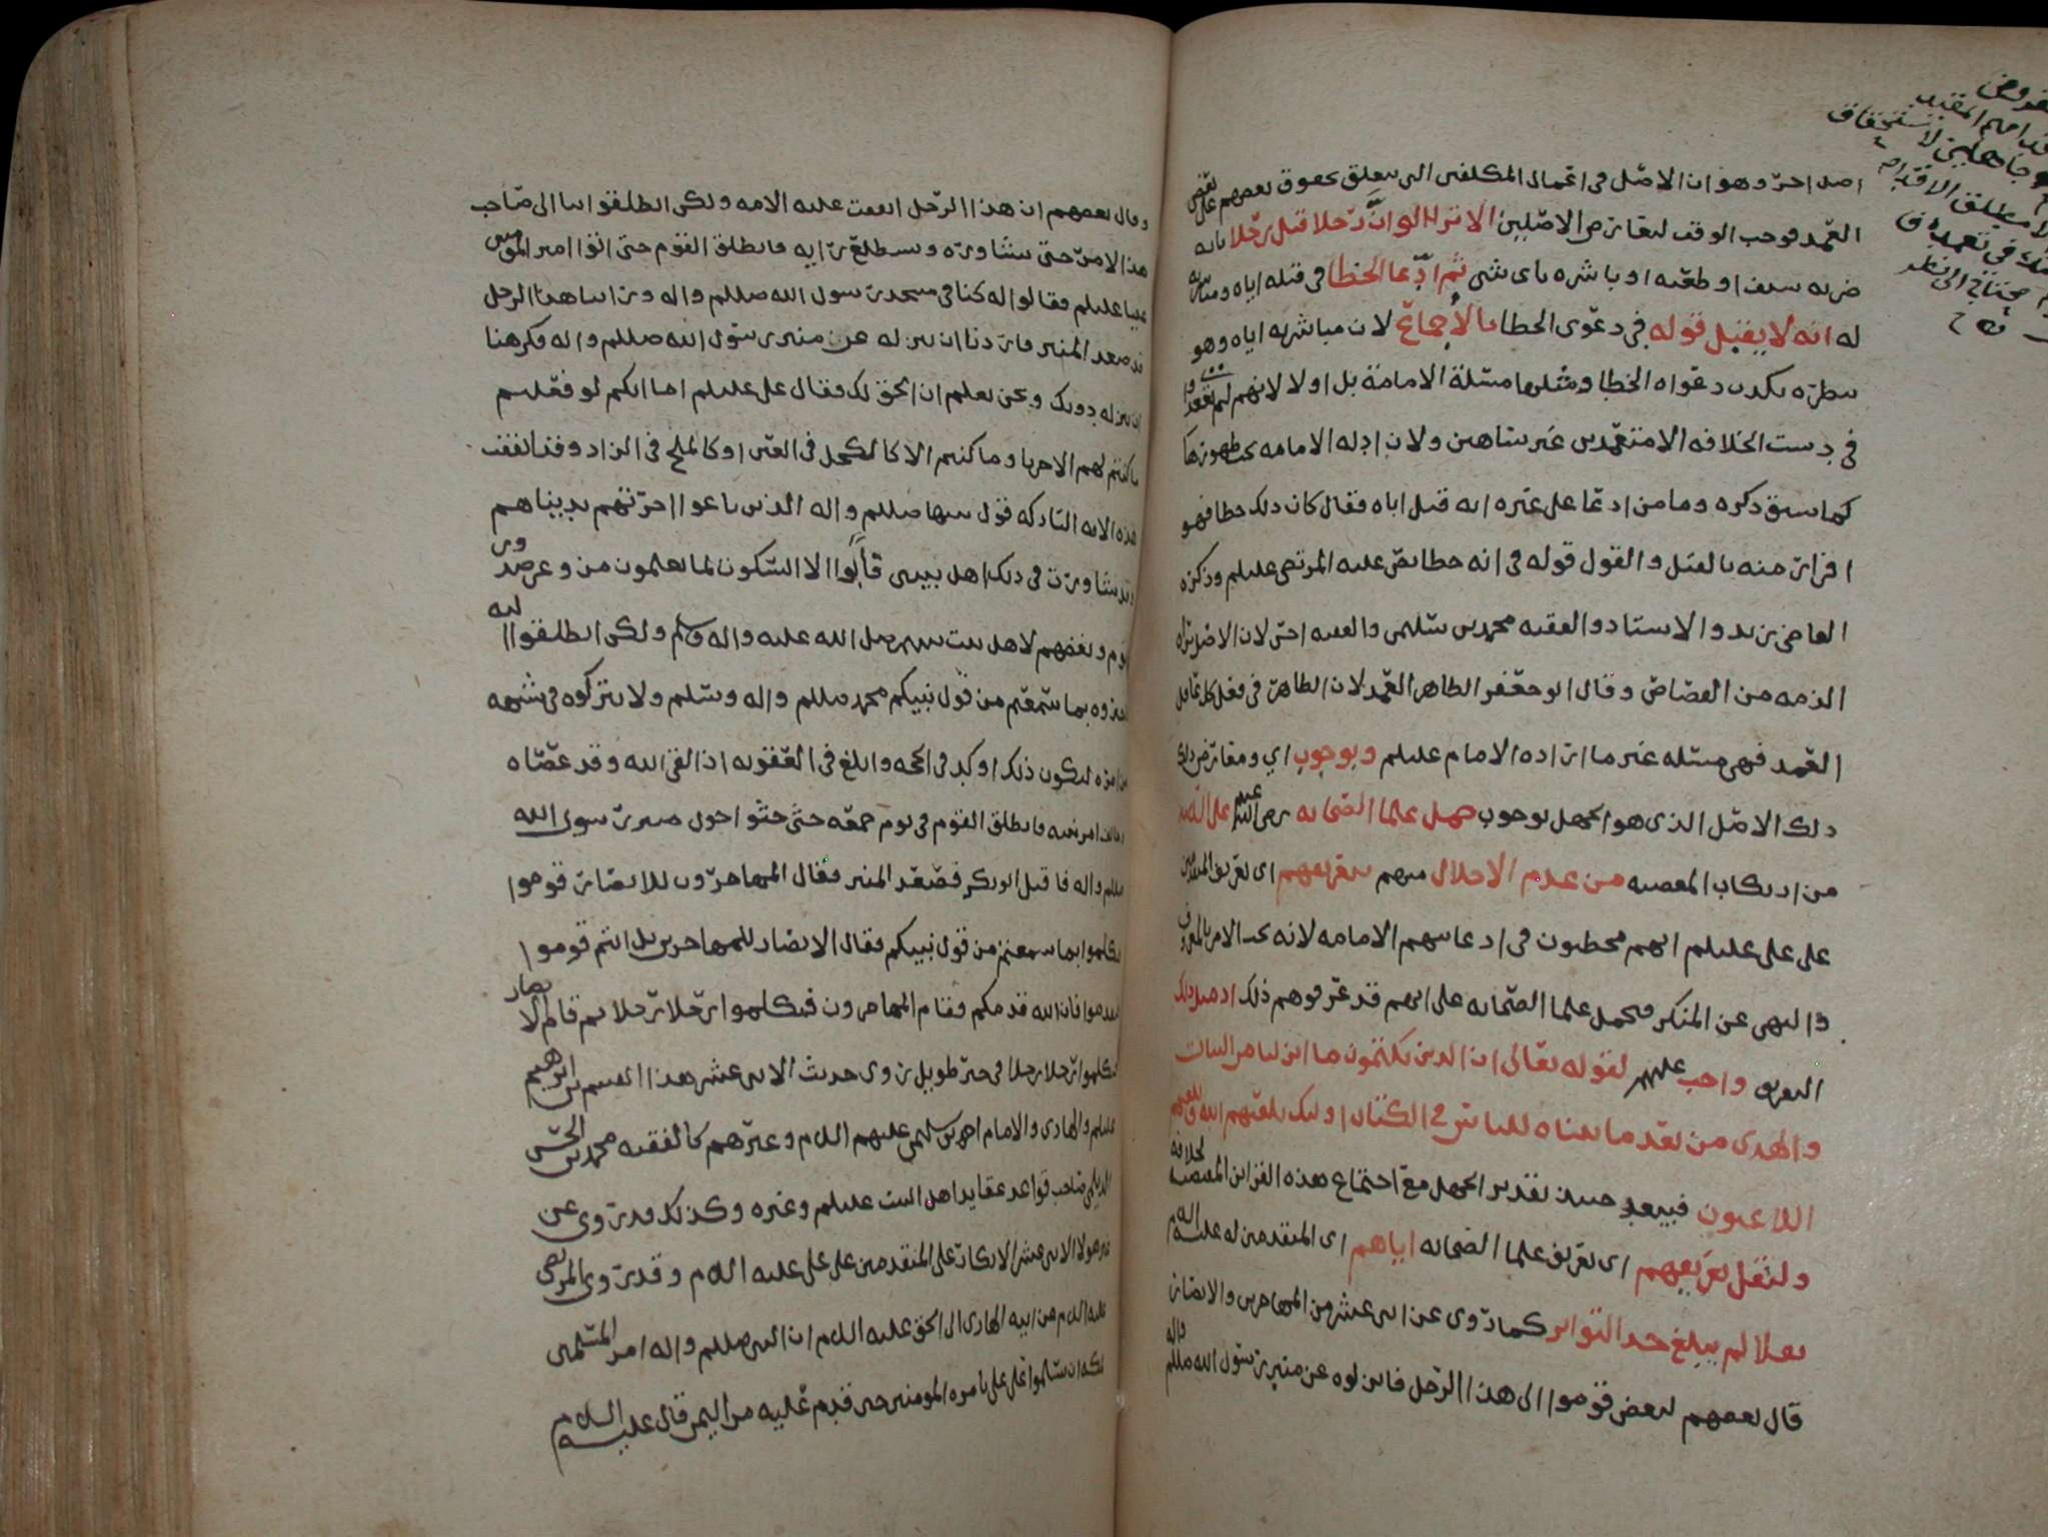 اصل احر وهو ان الاصل فى اعمال المكلفين التى يتعلق بحقوق بعضهم على بعض
العمد فوجب الوقف لتعارض الاصلين الا ترا الى ان رجلا قتل رجلا بانه
ضربه بسيف او طعنه او باشره باى شى ثم ادعا الخطا فى قتله اياه
له انه لا يقبل قوله فى دعوى الخطا بالاجماع لان مباشرته اياه وهو
ينظره يكذب دعواه الخطا ومثلها مسئلة الامامة بل اولا لانهم لم يقعدوا
فى دست الخلافه الا متعمدين غير ساهين ولان ادله الامامه
كما سبق ذكره وما من ادعا على غيره انه قتل اباه فقال كان ذلك خطا فهو
اقرار منه بالقتل والقول قوله فى انه خطا نص عليه المرتضى عليلم وذكره
القاضى زيد والاستاد والفقيه محمد بن سليمن والفقيه احى لان الاصل براه
الذمه من القصاص وقال ابو جعفر الظاهر العمد لان الظاهر فى فعل كل عاقل
العمد فهى مسئله غير ما اراده الامام عليلم وبوجوب اي ومعارض ذلك
ذلك الاصل الذى هو الجهل بوجوب حمل علما الصحابه رضى الله عنهم على
من ارتكاب المعصيه من عدم الاخلال منهم بتعريفهم اى تعريف المتقدمين
على على عليلم انهم مخطيون فى ادعايهم الامامه لانه يجب الامر بالمعروف
والنهى عن المنكر فيحمل علما الصحابه على انهم قد عرفوهم ذلك اذ مثل ذلك
التعريف واجب عليهم لقوله تعالى ان الذين يكتمون ما انزلنا من البينات
والهدى من بعد ما بيناه للناس فى الكتاب اوليك يلعنهم الله ويلعنهم
اللاعنون فيبعد حينيذ تقدير الجهل مع اجتماع هذه القراين المقتضيه لخلافه
ولنقل تعريفهم اى تعريف علما الصحابه اياهم اى المتقدمين له عليه السلم
نقلا لم يبلغ حد التواتر كما روى عن اثنى عشر من المهاجرين والانصار
قال بعضهم لبعض قوموا الى هذا الرجل فانزلوه عن منبر رسول الله صللم واله
وقال بعضهم ان هذا الرجل اتفقت عليه الامه ولكن انطلقوا بنا الى صاحب
هذا الامر حتى نشاوره ونستطلع رايه فانطلق القوم حتى اتوا امير المومنين
عليا عليلم فقالوا له كنا فى مسجد رسول الله صللم واله وراينا هذا الرجل
قد صعد المنبر فاردنا ان ننزله عن منبر رسول الله صللم واله فكرهنا
ان ننزله دونك ونحن نعلم ان الحق لك فقال على عليلم اما انكم لو فعلتم
ما كنتم لهم الا حربا وما كنتم الا كالكحل فى العين او كالملح فى الزاد وقد اتفقت
هذه الامه التاركه قول نبيها صللم واله الذين باعوا اخرتهم بدنياهم
وقد شاورت فى ذلك اهل بيتى قالوا الا السكوت لما تعلمون من وغر صدور
القوم وبغضهم لاهل بيت نبيهم صلى الله عليه واله وسلم ولكن انطلقوا اليه
بما سمعتم من قول نبيكم محمد صللم واله وسلم ولا تتركوه فى شبهه
من امره ليكون ذلك اوكد فى الحجه وابلغ فى العقوبه اذا لقى الله وقد عصاه
وخالف امر نبيه فانطلق القوم فى يوم جمعه حتى جثوا حول منبر رسول الله
صللم واله فاقبل ابو بكر فصعد المنبر فقال المهاجرون للانصار قوموا
تكلموا بما سمعتم من قول نبيكم فقال الانصار للمهاجرين بل انتم قوموا
تقدموا فان الله قدمكم فقام المهاجرون فتكلموا رجلا رجلا ثم قام الانصار
فتكلموا رجلا رجلا فى خبر طويل روى حديث الاثنى عشر هذا القسم بن ابرهيم
عليلم والهادى والامام احمد بن سليمن عليهم السلام وغيرهم كالفقيه محمد بن الحسن
الديلمى صاحب قواعد عقايد اهل البيت عليلم وغيره وكذلك قد روى عن
غير هولا الاثنى عشر الانكار على المتقدمين على على عليه السلام وقد روى المرتضى
عليه السلام عن ابيه الهادى الى الحق عليه السلام ان النبى صللم واله امر المسلمين
ان يسلموا على على بامره المومنين حين قدم عليه من اليمن قال عليه السلام